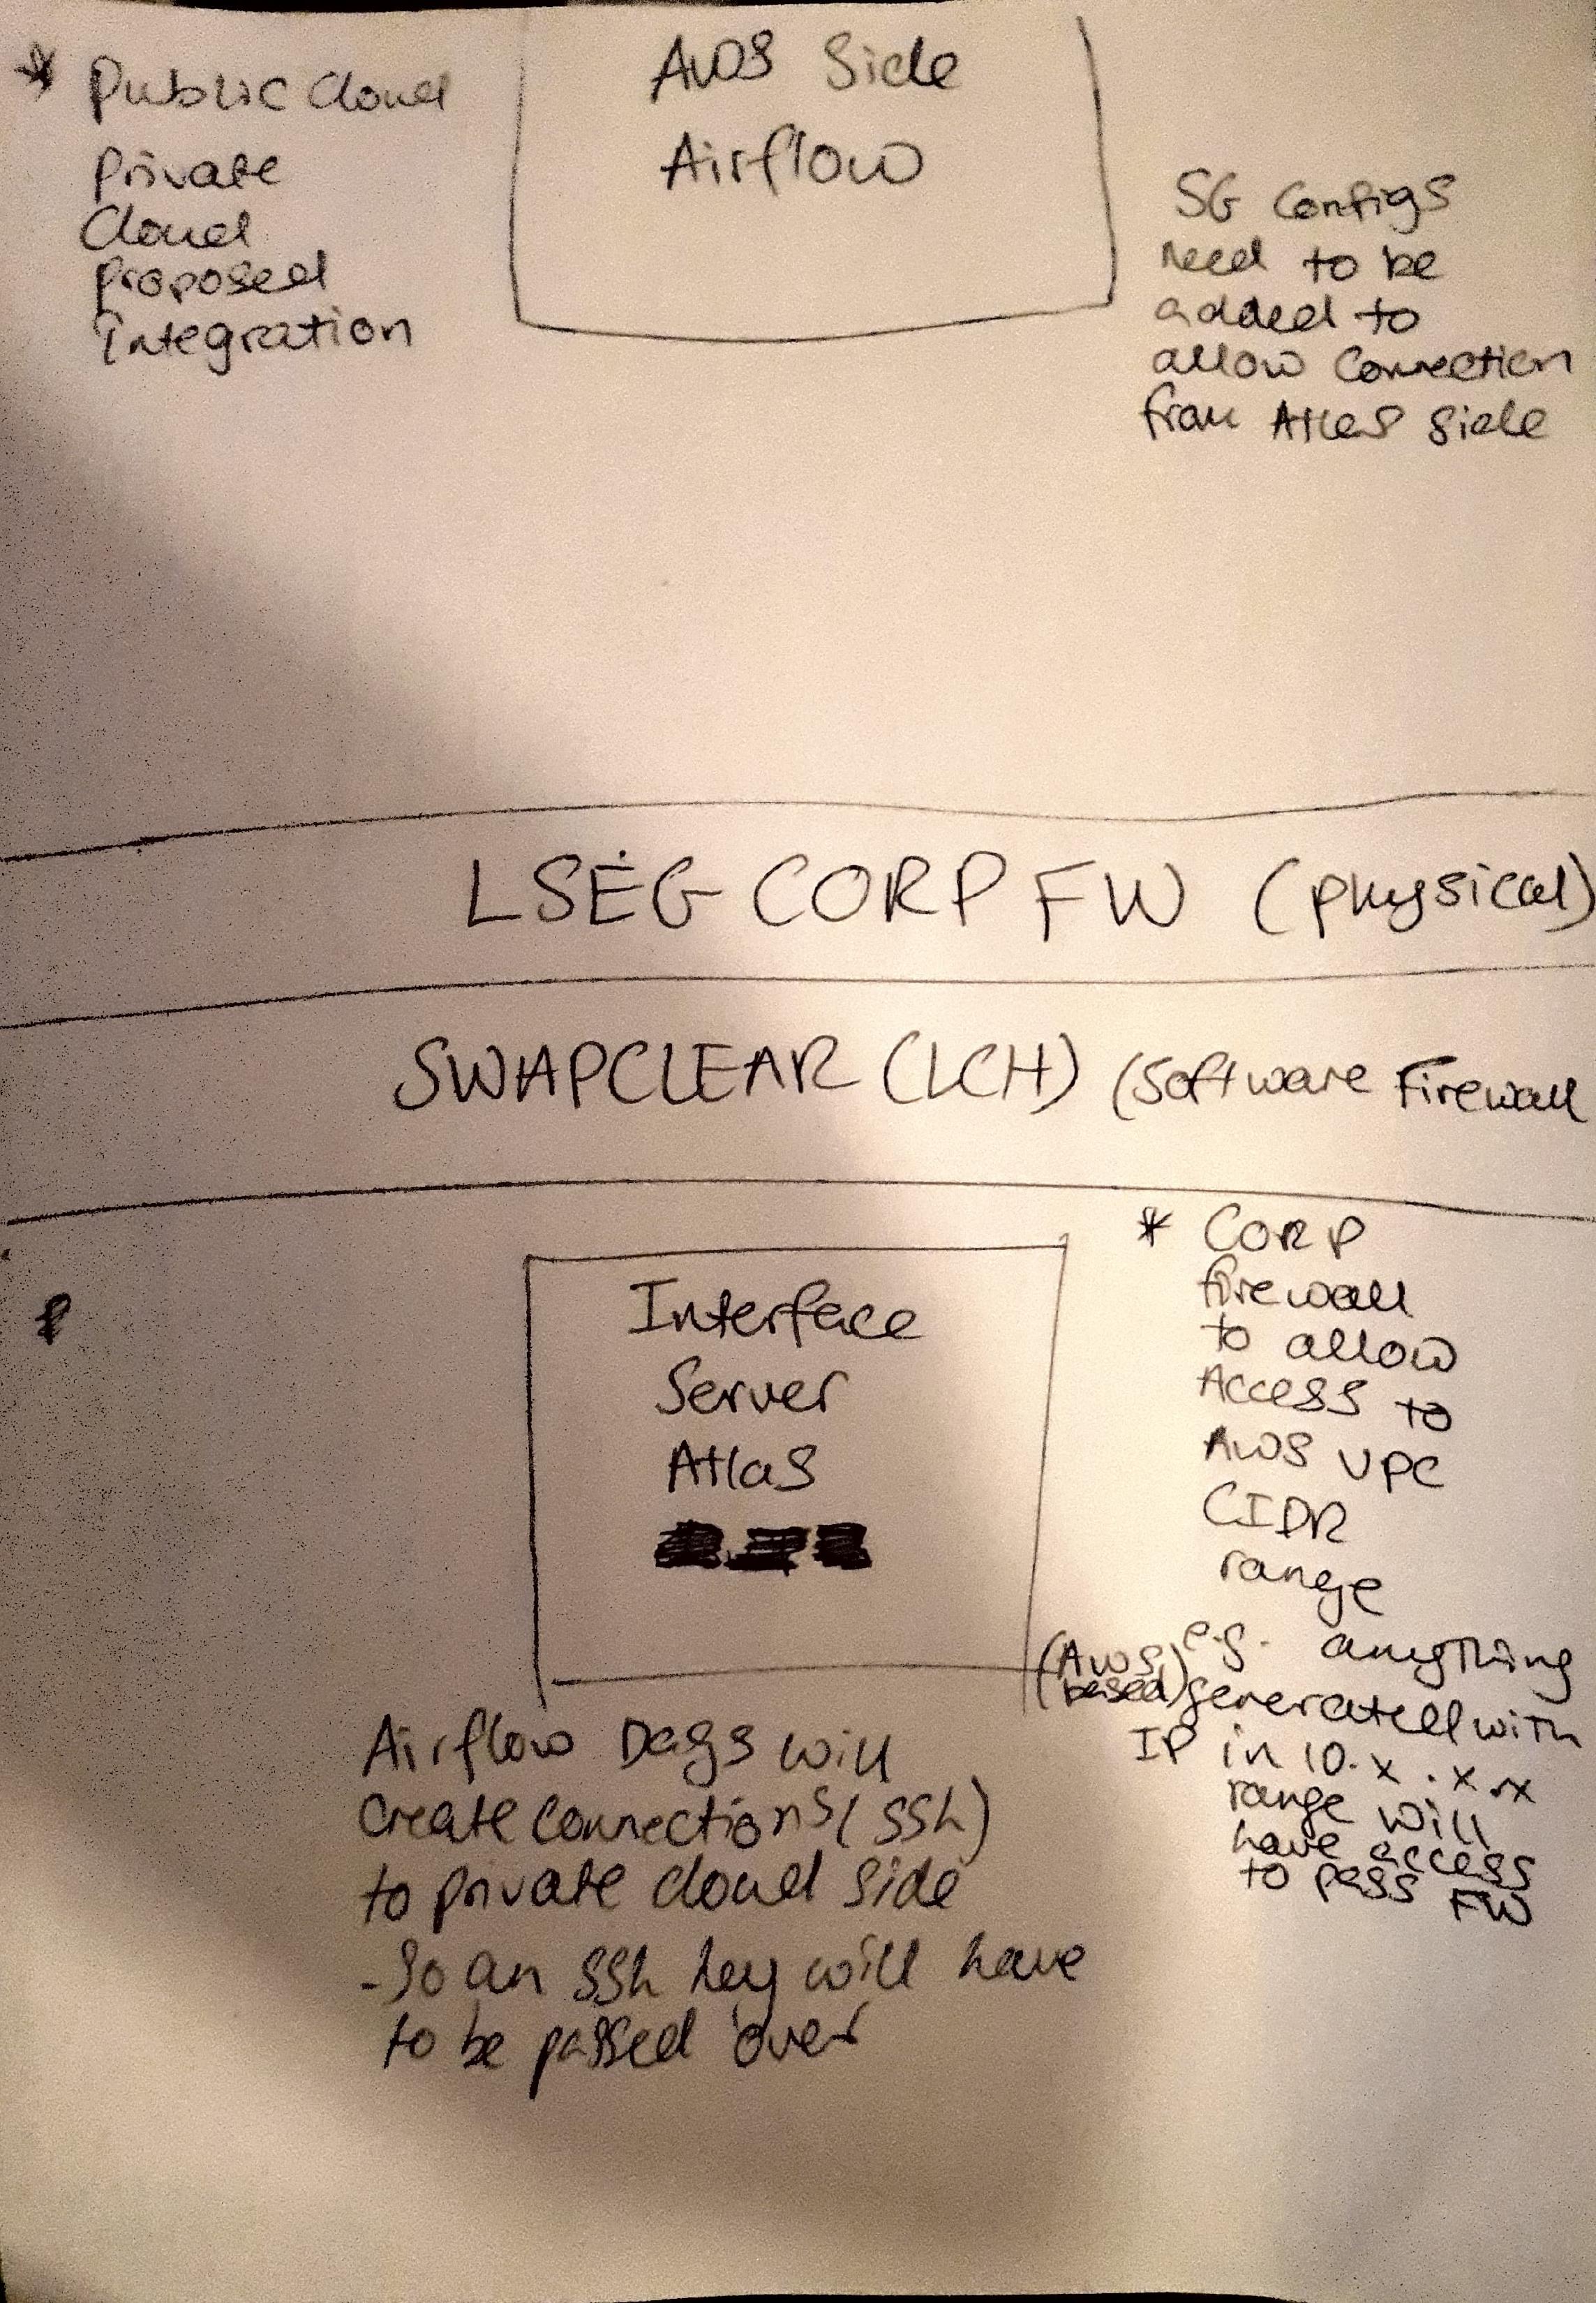 * Public Cloud
Private
Cloud
proposed
Integration
AWS Side
Airflow
SG Configs
need to be
added to
allow connection
from Atlas side
LSEG CORP FW (physical)
SWAPCLEAR (LCH) (Software Firewall
Interface
Server
Atlas
* CORP
firewall
to allow
Access to
AWS VPC
CIDR
range
e.g. anything
(AWS based) generated with
IP in 10.x.x.x
range will
have access
to pass FW
Airflow Dags will
create connections (ssh)
to private cloud side
- So an ssh key will have
to be passed over